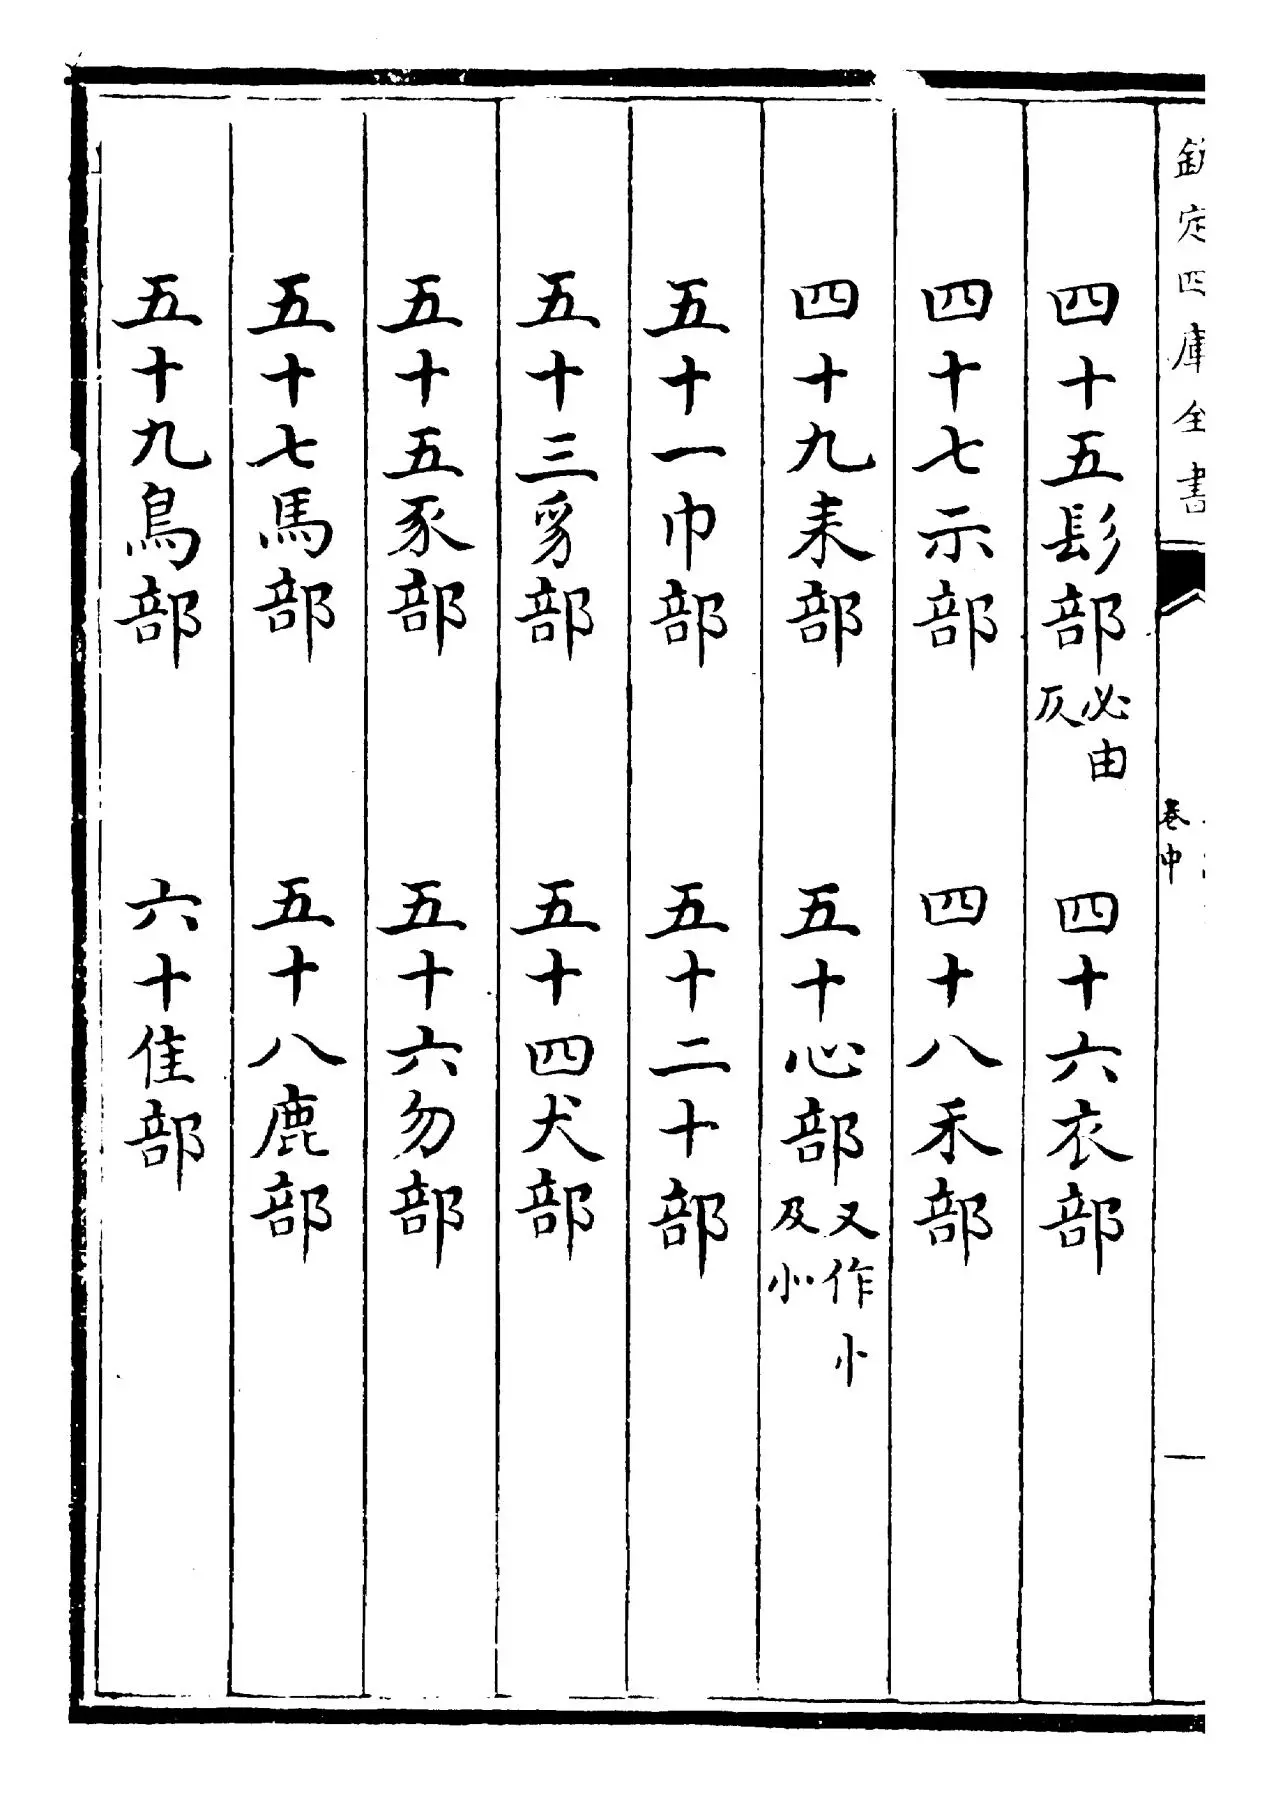 欽定四庫全書
卷中
四十五髟部必由反 四十六衣部
四十七示部 四十八禾部
四十九耒部 五十心部又作小及㣺
五十一巾部 五十二十部
五十三豸部 五十四犬部
五十五豕部 五十六勿部
五十七馬部 五十八鹿部
五十九鳥部 六十隹部